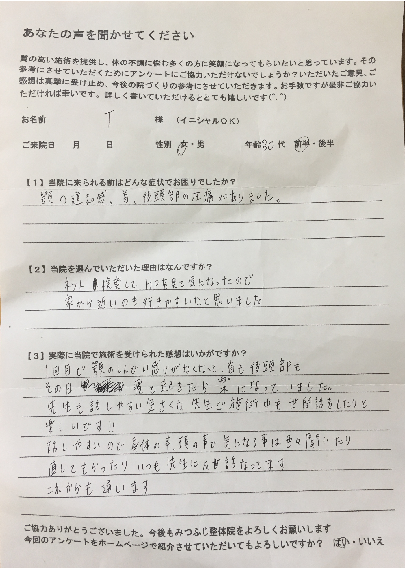 あなたの声を聞かせてください
質の高い施術を提供し、体の不調に悩む多くの方に笑顔になってもらいたいと思っています。その
参考にさせていただくためにアンケートにご協力いただけないでしょうか？いただいたご意見、ご
感想は真摯に受け止め、今後の院づくりの参考にさせていただきます。お手数ですが是非ご協力い
ただければ幸いです。詳しく書いていただけるととても嬉しいです(^.^)
お名前 T 様 （イニシャルOK）
ご来院日 月 日 性別 女・男 年齢30代 前半・後半
【1】当院に来られる前はどんな症状でお困りでしたか？
顎の違和感、首、後頭部の圧痛がありました。
【2】当院を選んでいただいた理由はなんですか？
ネット検索して 気になったので
家から近いので行きやすいと思いました
【3】実際に当院で施術を受けられた感想はいかがですか？
1回目で顎の 感じがなくなり、首も後頭部も
その日 楽になっていました。
先生も話しやすい 先生で施術中も世間話をしたりと
楽しいです！
話しやすいので身体の事 気になる事は 聞いたり
直してもらったり いつも先生にお世話なってます
これからも通います
ご協力ありがとうございました。今後もみつふじ整体院をよろしくお願いします
今回のアンケートをホームページで紹介させていただいてもよろしいですか？ はい・いいえ